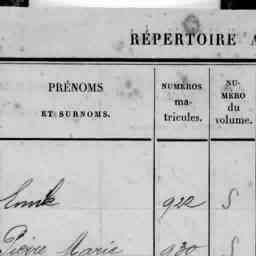 RÉPERTOIRE A
PRÉNOMS
ET SURNOMS.
NUMEROS
ma-
tricules.
NU-
MÉRO
du
volume.
922 S
Pierre Marie 930 S